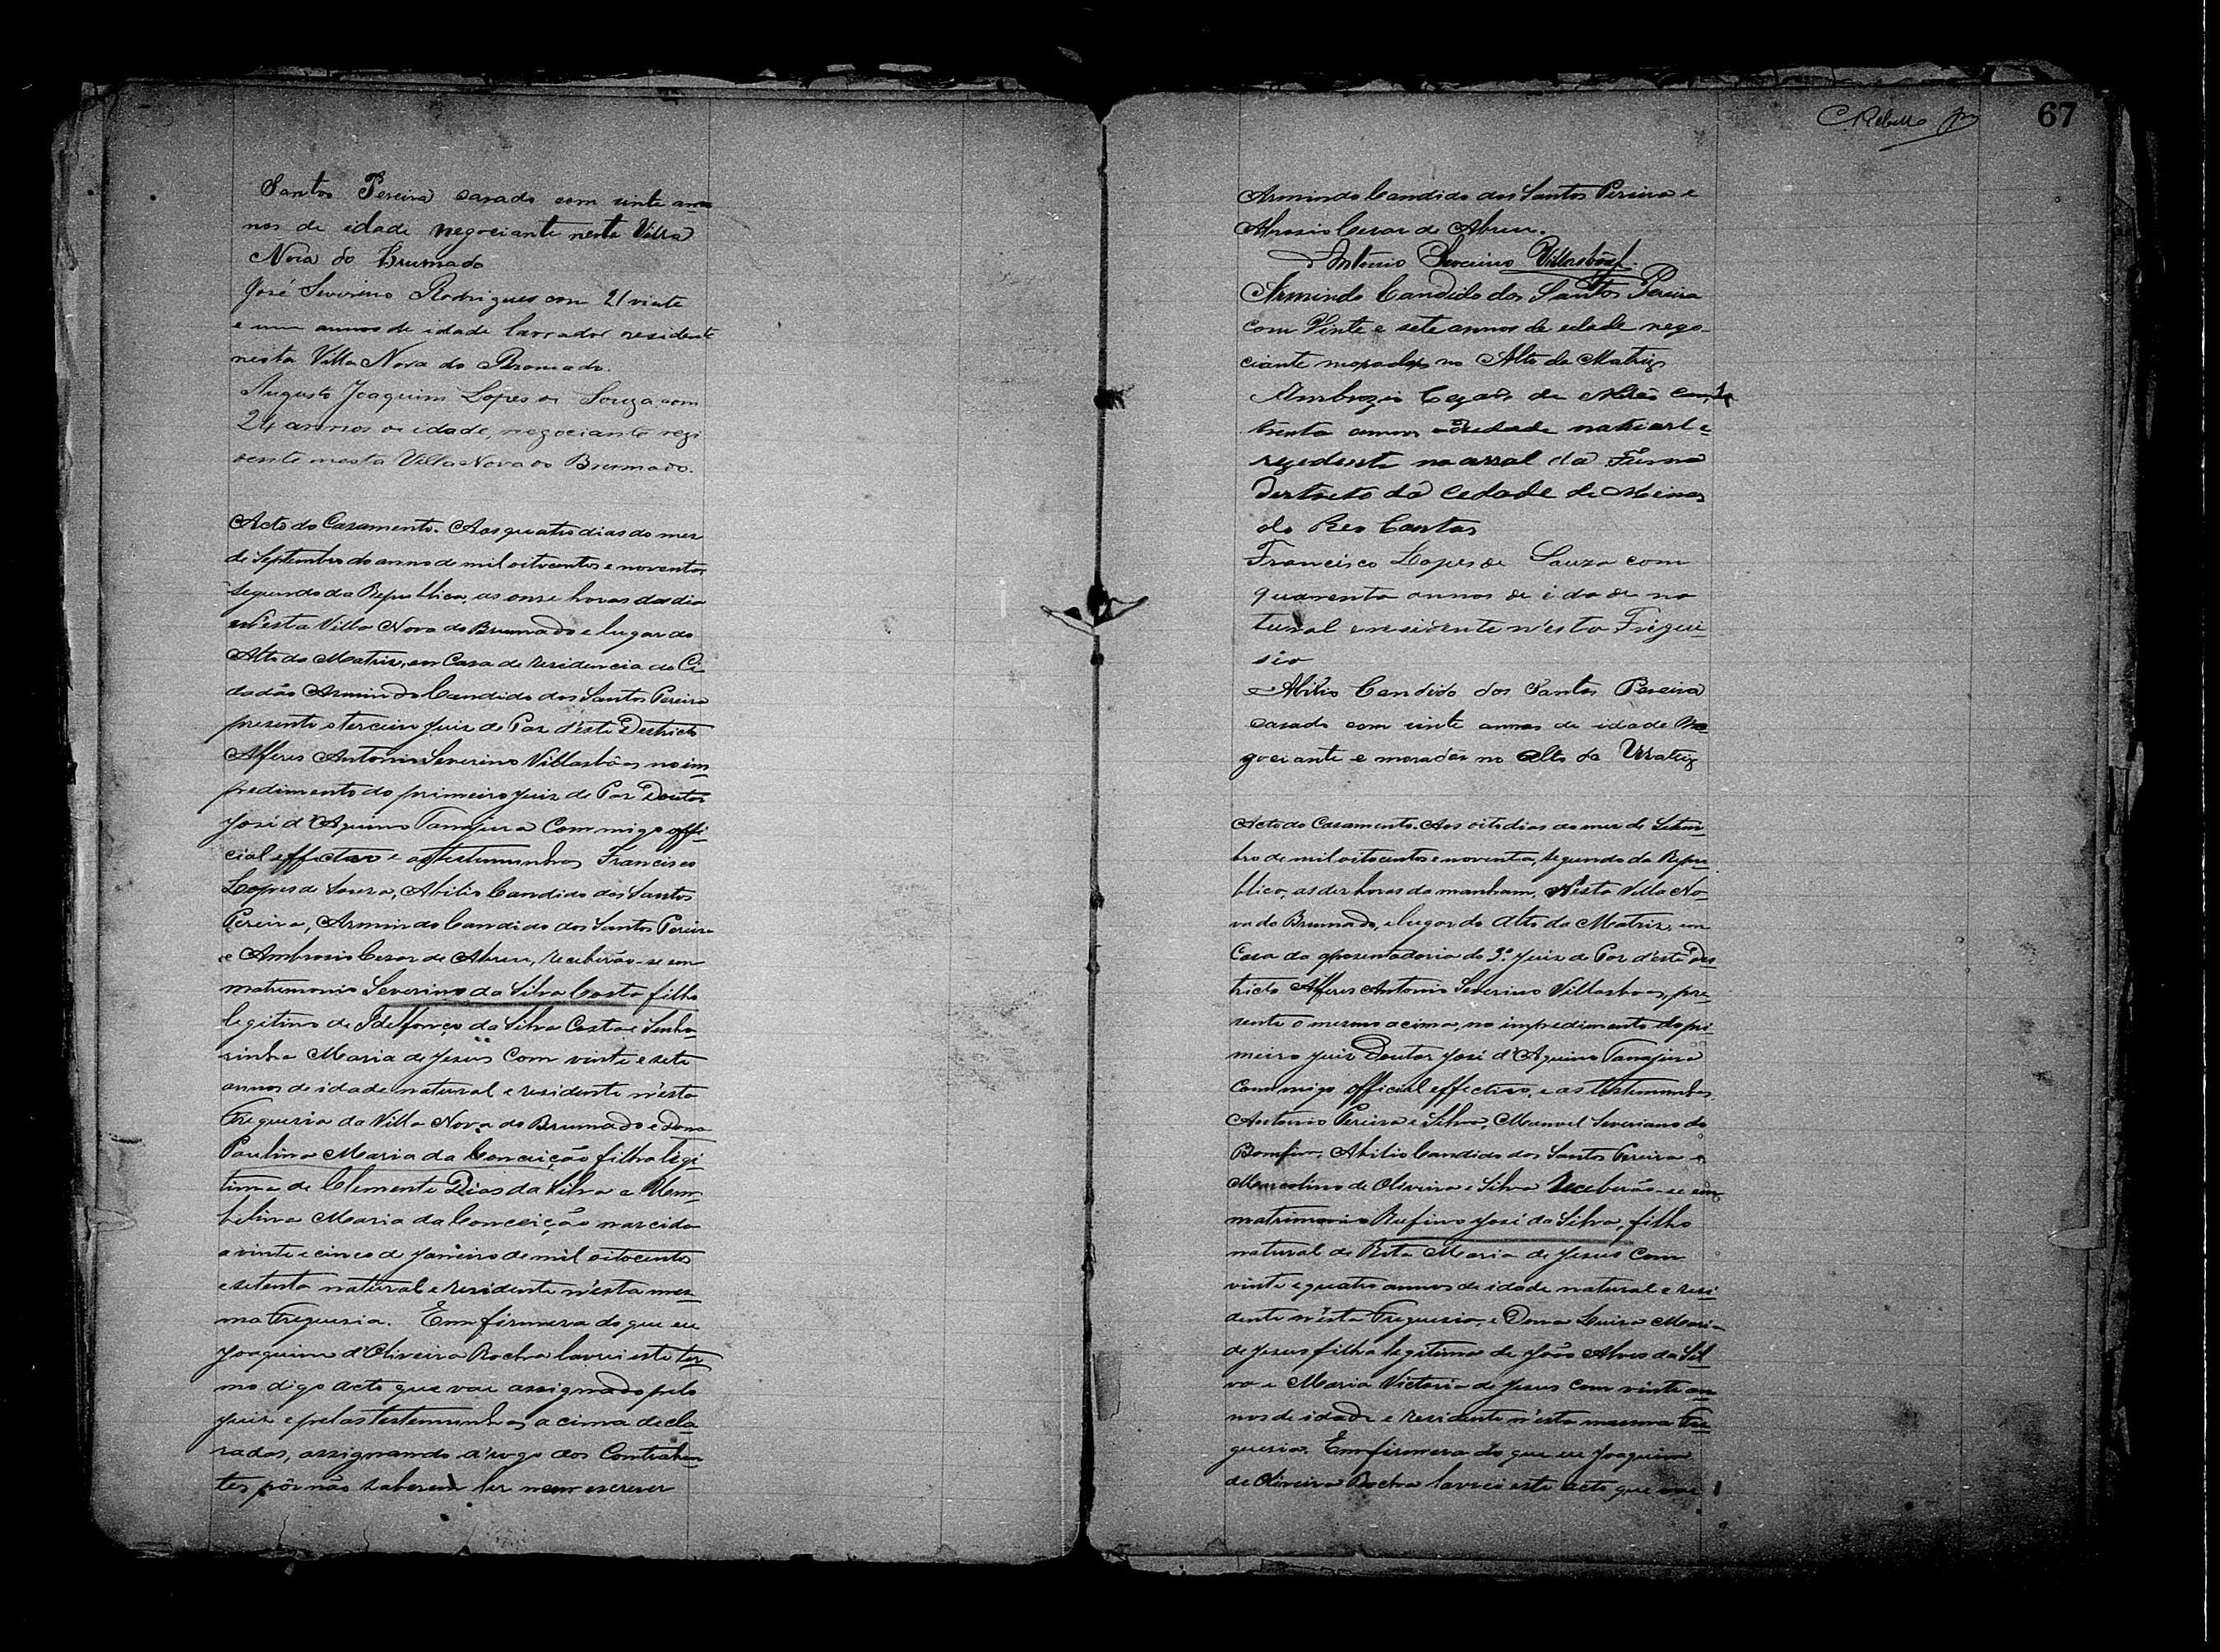 Santos Pereira casado com vinte an
nos de idade negociante nesta Villa
Nova do Brumado
José Severino Rodrigues com 21 vinte
e um annos de idade lavrador residente
nesta Villa Nova do Brumado.
Augusto Joaquim Lopes de Souza com
24 annos de idade, negociante rezi
dente nesta Villa Nova do Brumado.
Acto do Casamento. Aos quatro dias do mez
de Septembro do anno de mil oitocentos e noventa,
segundo da Republica, as onze horas do dia
n'esta Villa Nova do Brumado e lugar do
Alto da Matriz, em Casa de residencia do Ci
dadão Armindo Candido dos Santos Pereira
presente o terceiro Juiz de Paz d'este Destricto
Alferes Antonio Severino Villasbôas no im
pedimento do primeiro Juiz de Paz Doutor
José d'Aquino Tanajura Commigo offi
cial effectivo e as testemunhas Francisco
Lopes de Souza, Abilio Candido dos Santos
Pereira, Armindo Candido dos Santos Pereira
e Ambrosio Cesar de Abreu, receberão-se em
matrimonio Severino da Silva Costa filho
legitimo de Idelfonço da Silva Costa e Senho
rinha Maria de Jesus Com vinte e sete
annos de idade natural e residente n'esta
Freguesia da Villa Nova do Brumado e Dona
Paulina Maria da Conceição filha legi
tima de Clemente Dias da Silva e Um
belina Maria da Conceição nascida
a vinte e cinco de Janeiro de mil oitocentos
e setenta natural e residente n'esta mes
ma Freguesia. Em firmeza do que eu
Joaquim d'Oliveira Rocha lavrei este ter
mo digo acto que vae assignado pelo
Juiz e pelas testemunhas acima decla
radas, assignando a rogo dos Contrahen
tes pôr não saberem ler nem escrever
67
Armindo Candido dos Santos Pereira e
Abrosio Cesar de Abreu.
Antonio Severino Villasbôas.
Armindo Candido dos Santos Pereira
com Vinte e sete annos de edade nego-
ciante morador no Alto da Matriz
Ambrozio Cezar de Abreo com
trenta annos de edade natural e
rezedente no arral da Furna
destreto da Cedade de Minas
do Reo Contas
Francisco Lopes de Souza com
quarenta annos de idade na
tural e residente n'esta Fregue
sia
Abilio Candido dos Santos Pereira
casado com vinte annos de idade ne
gociante e morador no Alto da Matriz
Acto do Casamento. Aos oito dias do mez de Setem
bro de mil oitocentos e noventa, segundo da Repu
blica, as dez horas da manham, N'esta Villa No
va do Brumado, e lugar do Alto da Matriz, em
Casa da aposentadoria do 3.º Juiz de Paz d'este Des
tricto Alferes Antonio Severino Villasboas, pre
sente o mesmo acima, no impedimento do pri
meiro Juiz Doutor José d'Aquino Tanajura
Commigo official effectivo, e as testemunhas
Antonio Pereira e Silva, Manuel Severiano do
Bomfim, Abilio Candido dos Santos Pereira e
Marcolino de Oliveira e Silva Receberão-se em
matrimonio Rufino José da Silva, filho
natural de Rita Maria de Jesus Com
vinte e quatro annos de idade natural e resi
dente n'esta Freguesia, e Dona Luiza Maria
de Jesus filha legitima de João Alves da Sil
va e Maria Victoria de Jesus com vinte an
nos de idade e residente n'esta mesma Fre
guesia. Em firmeza do que eu Joaquim
de Oliveira Rocha lavrei este acto que vae